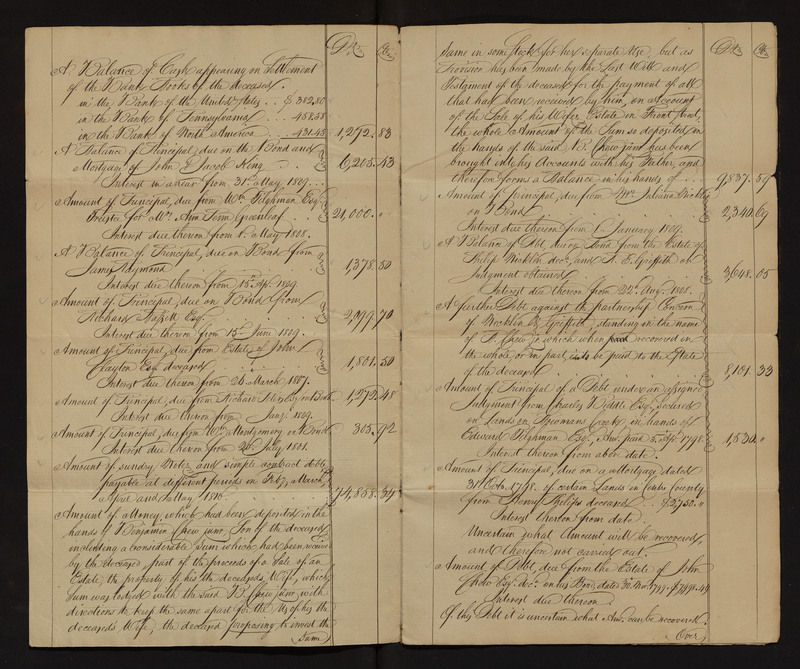 Ds. Cts.
A Balance of Cash appearing on Settlement
of the Bank Books of the deceased.
in the Bank of the United States . . $ 382,80
in the Bank of Pennsylvania . . . 458.58
in the Bank of North America . . . 431.45 1,272.83
A Balance of Principal, due on the Bond and
Mortgage of John & Jacob King . . . 6,205.43
Interest in arrear from 31st May 1809 . . .
Amount of Principal, due from Wm. Tilghman Esqr.
Trustee for Mrs. Ann Penn Greenleaf . . 21,000. "
Interest due thereon from 1st May 1808.
A Balance of Principal, due on Bond from
James Raymond . . . . 1,378.50
Interest due thereon from 15th Apl. 1809.
Amount of Principal, due on Bond from
Richard Esqr. . . . 2,799.70
Interest due thereon from 15th June 1809.
Amount of Principal, due from Estate of John
Clayton Esqr. deceased . . . 1,801.50
Interest due thereon from 26 March 1807.
Amount of Principal, due from Richard on Bond 1,272.48
Interest due thereon from Jany. 1809.
Amount of Principal, due from Wm. Montgomery on Bond 303.92
Interest due thereon from 26th July 1801.
Amount of sundry Notes, and simple contract debts,
payable at different periods in Feby., March,
April and May 1810. . . . 74,858.34
Amount of Money, which had been deposited in the
hands of Benjamin Chew junr. Son of the deceased,
including a considerable Sum which had been received
by the deceased, part of the proceeds of a Sale of an
Estate, the property of his the deceaseds Wife, which
Sum was lodged with the said B. Chew junr. with
directions to keep the same apart for the Use of his the
deceased's Wife, the deceased proposing to invest the
Same
Ds. Cts.
same in some Stock for her separate Use, but as
Provision has been made by the Last Will and
Testament of the deceased for the payment of all
that had been received by him, on Account
of the Sale of his Wifes Estate in Front Street,
the whole Amount of the Sum so deposited in
the hands of the said B. Chew junr. has been
brought into his Accounts with his Father, and
therefore forms a Balance in his hands of . . . 9,837.59
Amount of Principal, due from Mrs. Juliana Nicklin
on Bond . . . 2,340.69
Interest due thereon from 1st January 1809.
A Balance of Debt, due on Bond from the Estate of
Philip Nicklin decd. and R. E. Griffith on
Judgment obtained . . . 3,648.05
Interest due thereon from 22d. Augt. 1808.
A further Debt against the partnership Concern
of Nicklin & Griffith, standing in the name
of B. Chew Jr. which when recovered in
the whole or in part, is to be paid to the Estate
of the deceased . . . 8,101.33
Amount of Principal of a Debt under an assigned
Judgment from Charles Biddle Esqr., secured
on Lands on Creek in hands of
Edward Tilghman Esqr. 5. Apl. 1798. 1,530 "
Interest thereon from above date.
Amount of Principal, due on a Mortgage dated
31 Octr. 1798. of certain Lands in Centre County
from Henry Philips deceased . . $2750. "
Interest thereon from date.
Uncertain what Amount will be recovered,
and therefore not carried out.
Amount of Debt, due from the Estate of John
Chew Esqr. decd. on his Bond, dated 30 Nov. 1799 $7,898.49
Interest due thereon.
Of this Debt it is uncertain what Amt. can be recovered.
Over